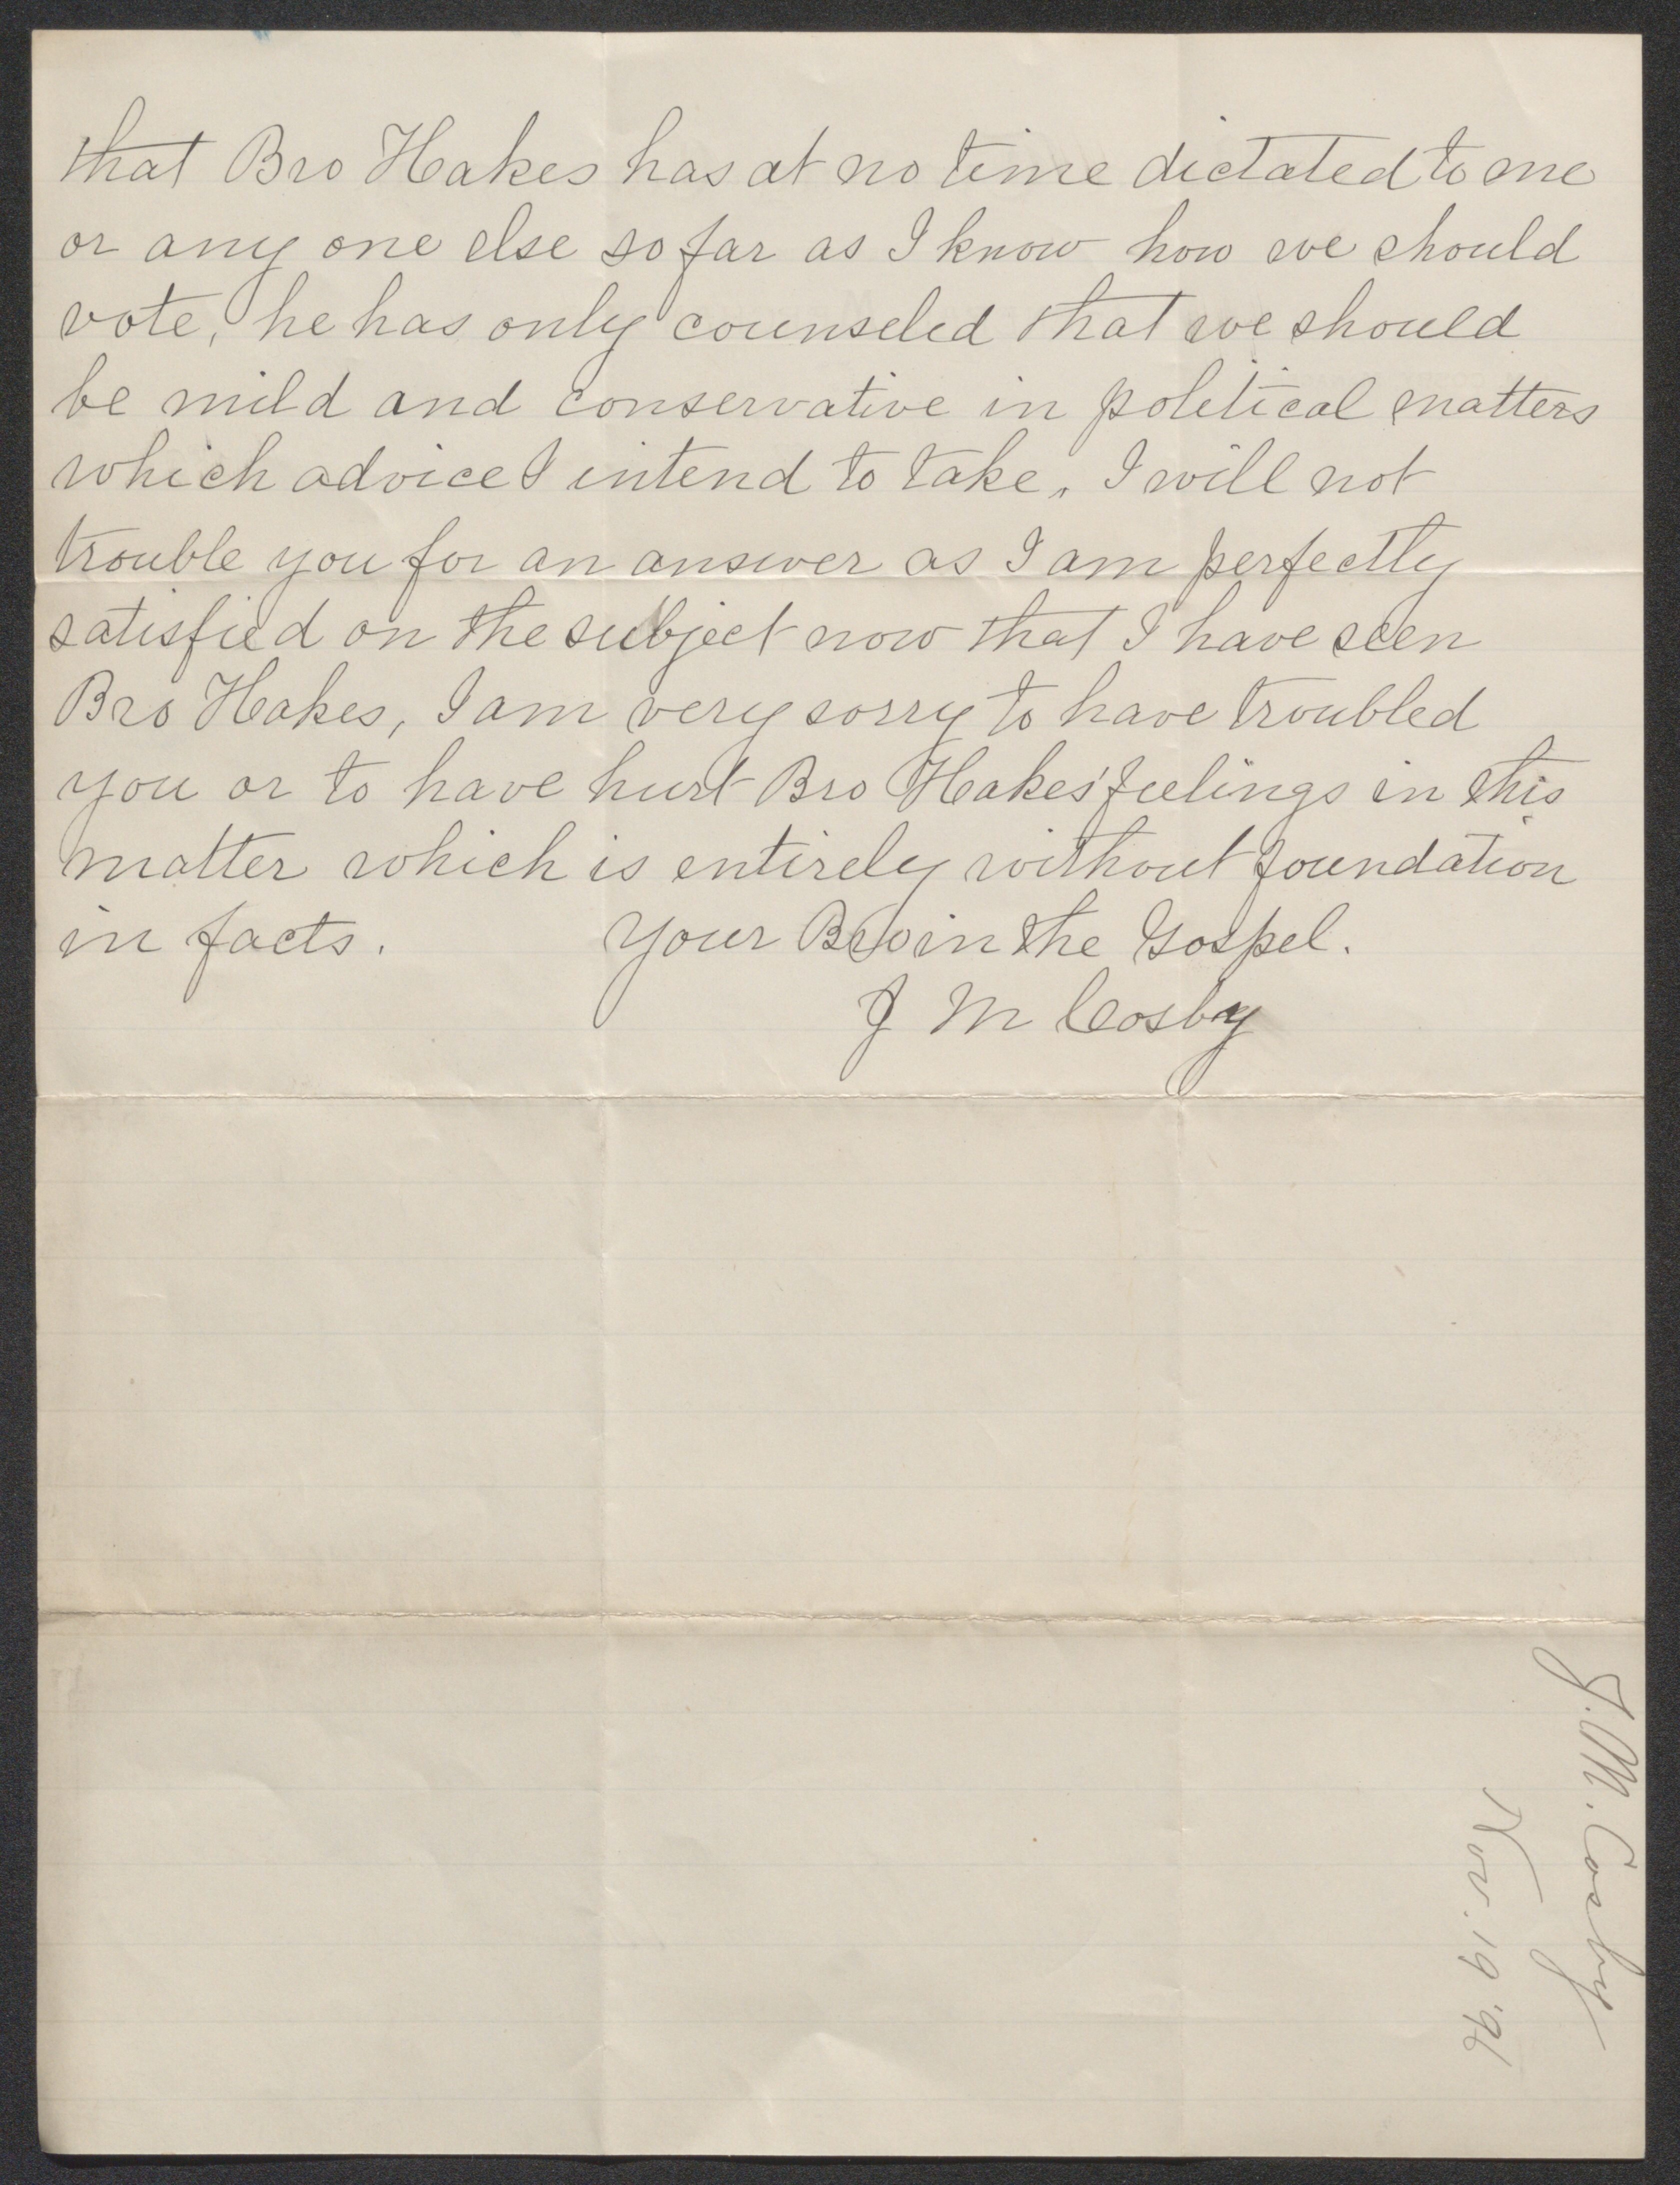 that Bro Hakes has at no time dictated to me
or any one else so far as I know how we should
vote, he has only counseled that we should
be mild and conservative in political matters
which advice I intend to take. I will not
trouble you for an answer as I am perfectly
satisfied on the subject now that I have seen
Bro Hakes, I am very sorry to have troubled
you or to have hurt Bro Hakes' feelings in this
matter which is entirely without foundation
in facts. Your Bro in the Gospel.
J M Cosby
J. M. Cosby
Nov. 19 '96